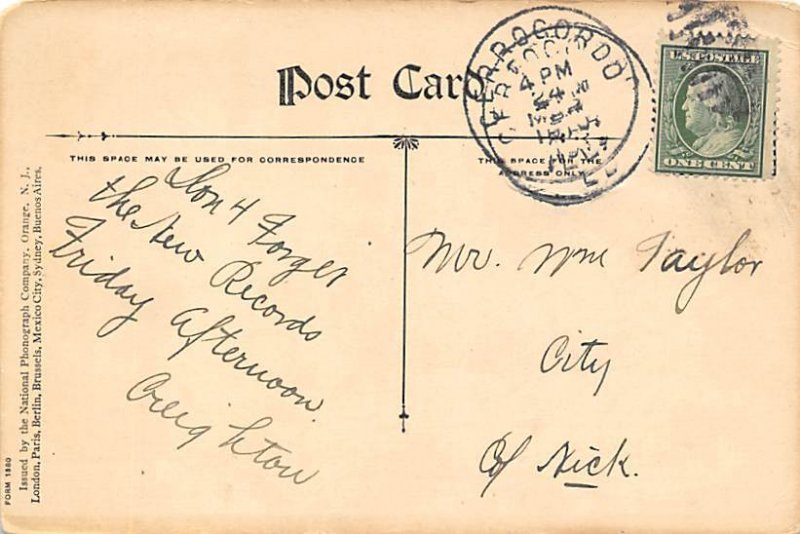 Post Card
CERROGORDO
4 PM
THIS SPACE MAY BE USED FOR CORRESPONDENCE
THIS SPACE FOR THE
ADDRESS ONLY
U.S. POSTAGE
ONE CENT
Don't Forget
the New Records
Friday Afternoon.
Creighton
Mr. Wm Taylor
City
c/o Nick.
FORM 1880
Issued by the National Phonograph Company, Orange, N. J.,
London, Paris, Berlin, Brussels, Mexico City, Sydney, Buenos Aires.